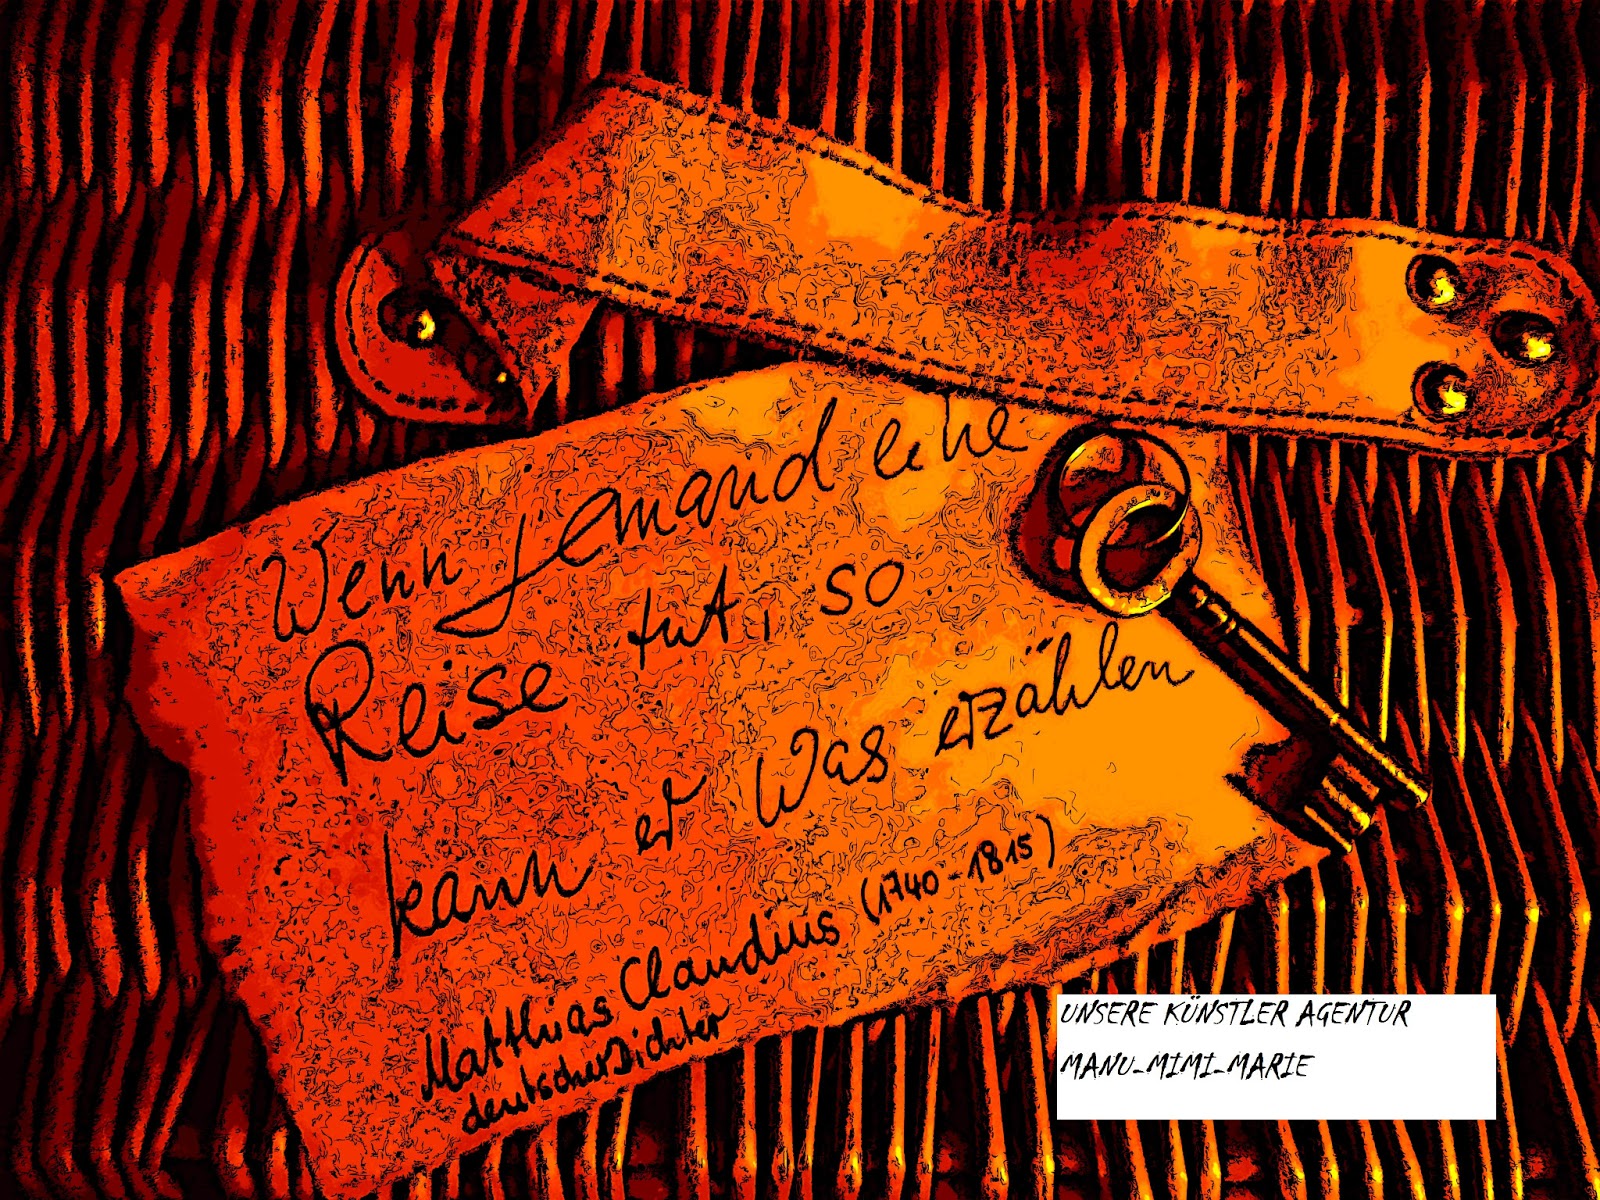 Wenn jemand eine
Reise tut, so
kann er was erzählen
Matthias Claudius (1740-1815)
deutscher Dichter
UNSERE KÜNSTLER AGENTUR
MANU-MIMI-MARIE